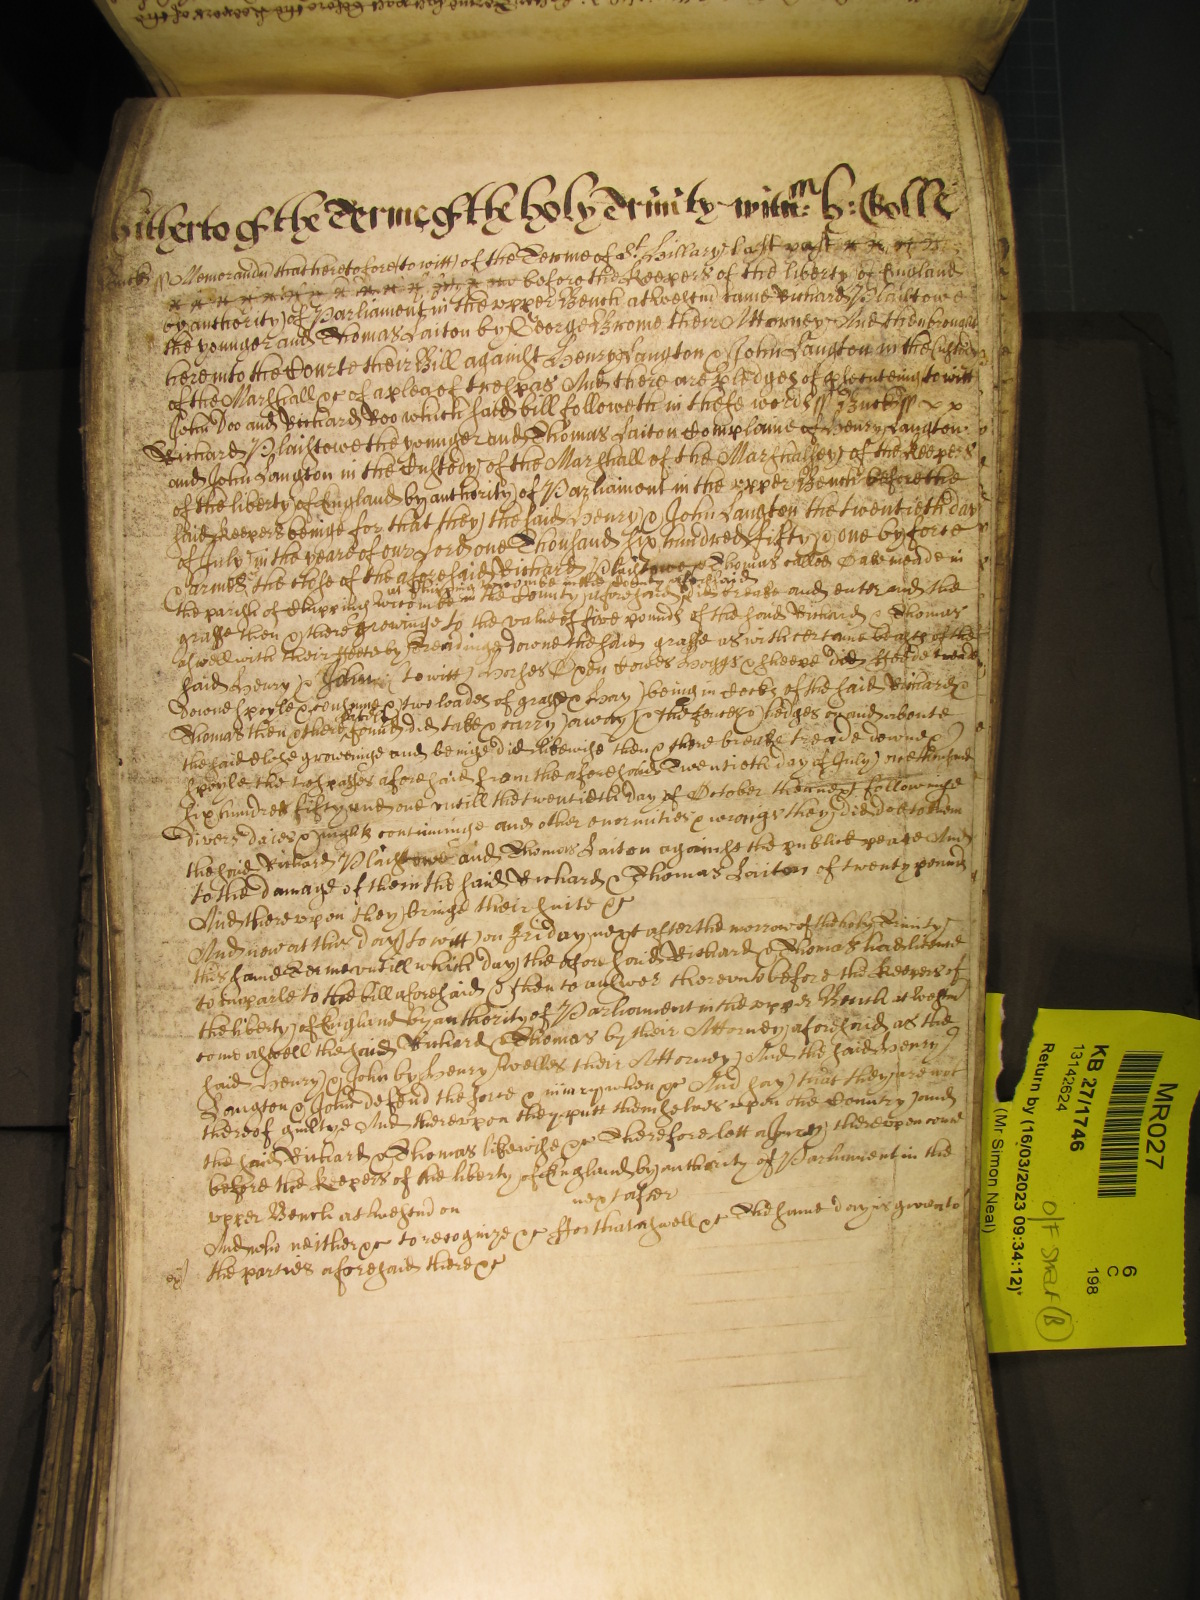 hitherto of the Terme of the holy Trinity witn:m h: Rolle
Bucks ss Memorandu that heretofore (to witt) of the Terme of St. Hillary last past
before the Keepers of the liberty of England
by authority of Parliament in the upper Bench at Westm came Richard Plaistowe
the younger and Thomas Laiton by George Brome their Attorney And then brought
here into the Courte their Bill against Henry Langton & John Langton in the Custody
of the Marshall &c of a plea of trespas And there are pledges of prosecuteing to witt
John Doo and Richard Roo which said bill followeth in these words ss Bucks ss
Richard Plaistowe the younger and Thomas Laiton Complaine of Henry Langton
and John Langton in the Custody of the Marshall of the Marshalsey of the Keepers
of the liberty of England by authority of Parliament in the upper Bench before the
said Keepers beinge for that they the said Henry & John Langton the twentieth day
of July in the yeare of our Lord one Thousand six hundred fifty & one by force
& armes the close of the aforesaid Richard Plaistowe & Thomas called meade in
at Chipping wiccombe in the County aforesaid
the parish of Chipping wiccombe in the County aforesaid did breake and enter and the
grasse then & there groweinge to the value of five pounds of the said Richard & Thomas
aswell with their feete by treadinge downe the said grasse as with certaine beasts of the
said Henry & John (to witt) horses Oxen Cowes hoggs & sheepe did feede treade
downe spoyle & consume & two loades of grasse & hay being in Cocks of the said Richard &
Thomas then & there found did take & carry away & the fences & hedges of and aboute
the said close groweinge and beinge did likewise then & there breake treade downe &
spoyle the trespasses aforesaid from the aforesaid Twentieth day of July one thousand
six hundred fifty and one untill the twentieth day of October then next followinge
divers daies & nights continuinge and other enormities & wrongs they did doe to them
the said Richard Plaistowe and Thomas Laiton against the publick peace And
to the damage of them the said Richard & Thomas Laiton of twenty pounds
And thereupon they bringe their suite &c
And now at this day (to witt) on Friday next after the morrow of the holy Trinity
this same Terme untill which day the aforesaid Richard & Thomas had license
to imparle to the bill aforesaid & then to answer thereunto before the Keepers of
the liberty of England by authority of Parliament in the upper Bench at Westm
come aswell the said Richard & Thomas by their Attorney aforesaid as the
said Henry & John by Henry Welles their Attorney And the said Henry
Langton & John defend the force & iniury when &c And say that they are not
thereof guiltye And thereupon they putt themselves upon the Country And
the said Richard & Thomas likewise &c Therefore lett a Jurey thereupon come
before the Keepers of the liberty of England by authority of Parliament in the
upper Bench at Westm on next after
And who neither &c to recognize &c fforthat aswell &c The same day is given to
the parties aforesaid there &c
MR027
KB 27/1746
13142624
Return by (16/03/2023 09:34:12)
(Mr Simon Neal)
6
C
198
O/F Shelf (B)